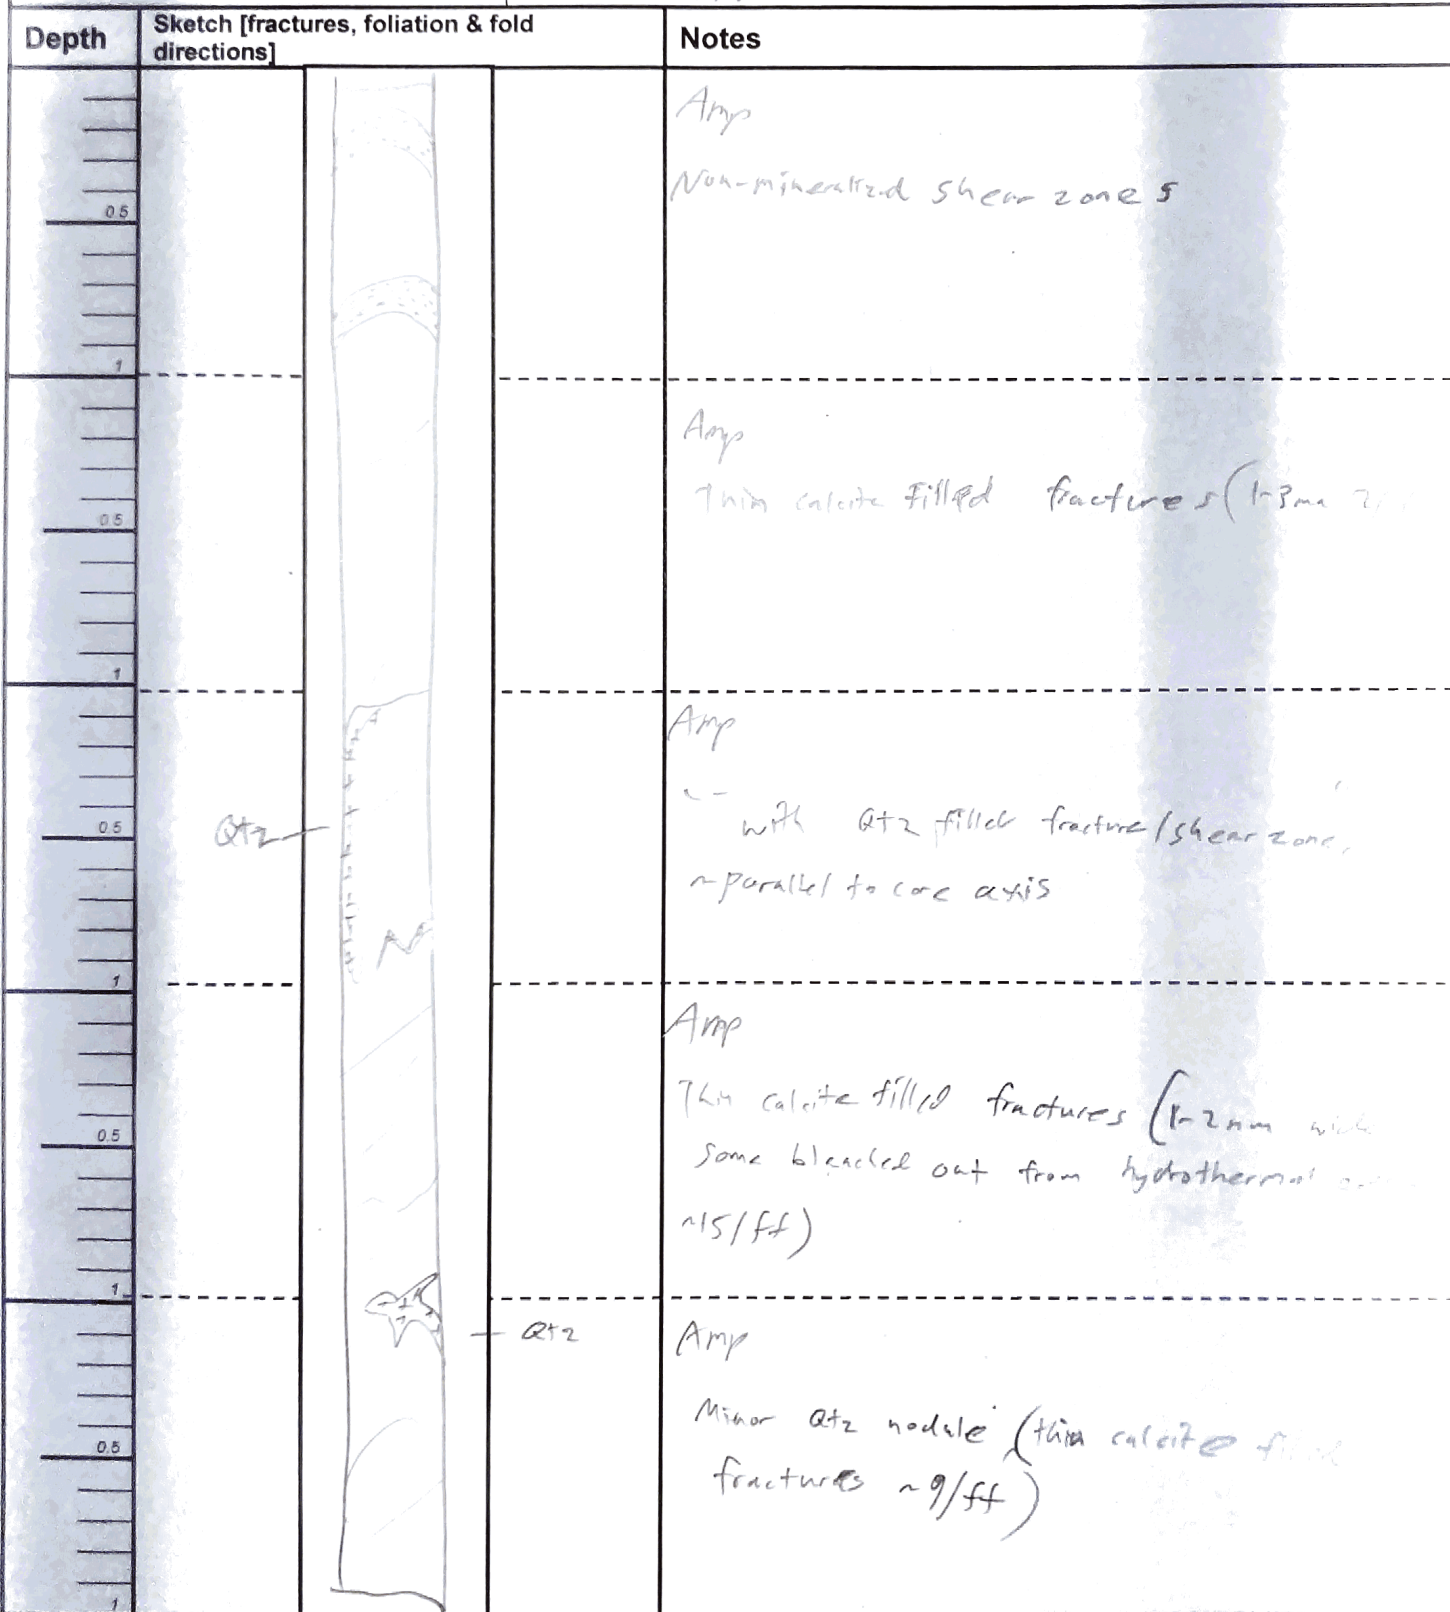 Depth
Sketch [fractures, foliation & fold
directions]
Notes
Amp
Non-mineralized shear zones
0.5
1
Amp
Thin calcite filled fractures (1-3mm
0.5
1
Amp
with Qtz filled fracture/shear zone,
Qtz
0.5
~parallel to core axis
1
Amp
Thin calcite filled fractures (1-2mm
0.5
some bleached out from hydrothermal
~15/ft)
1
Qtz
Amp
Minor Qtz nodule (thin calcite
0.5
fractures ~9/ft)
1